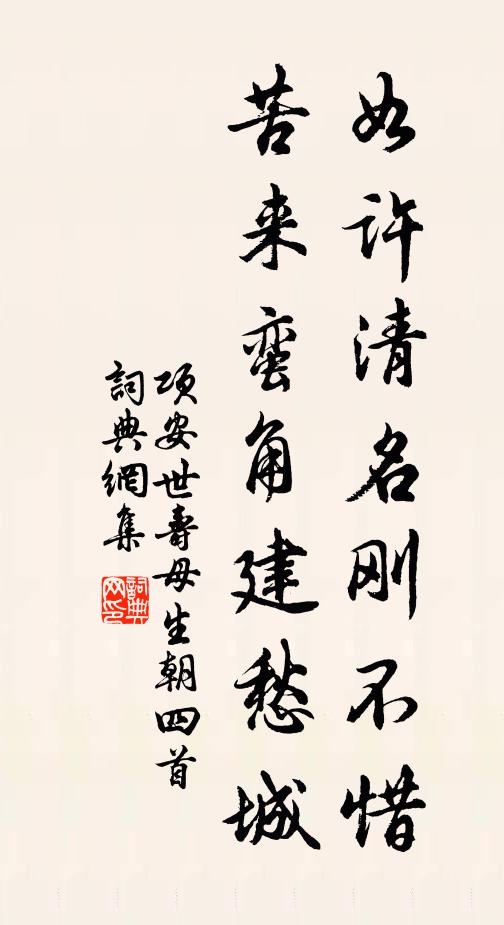 如许清名刚不惜
苦来蛮角建愁城
项安世寿母生朝四首
詞典網集
詞典网印